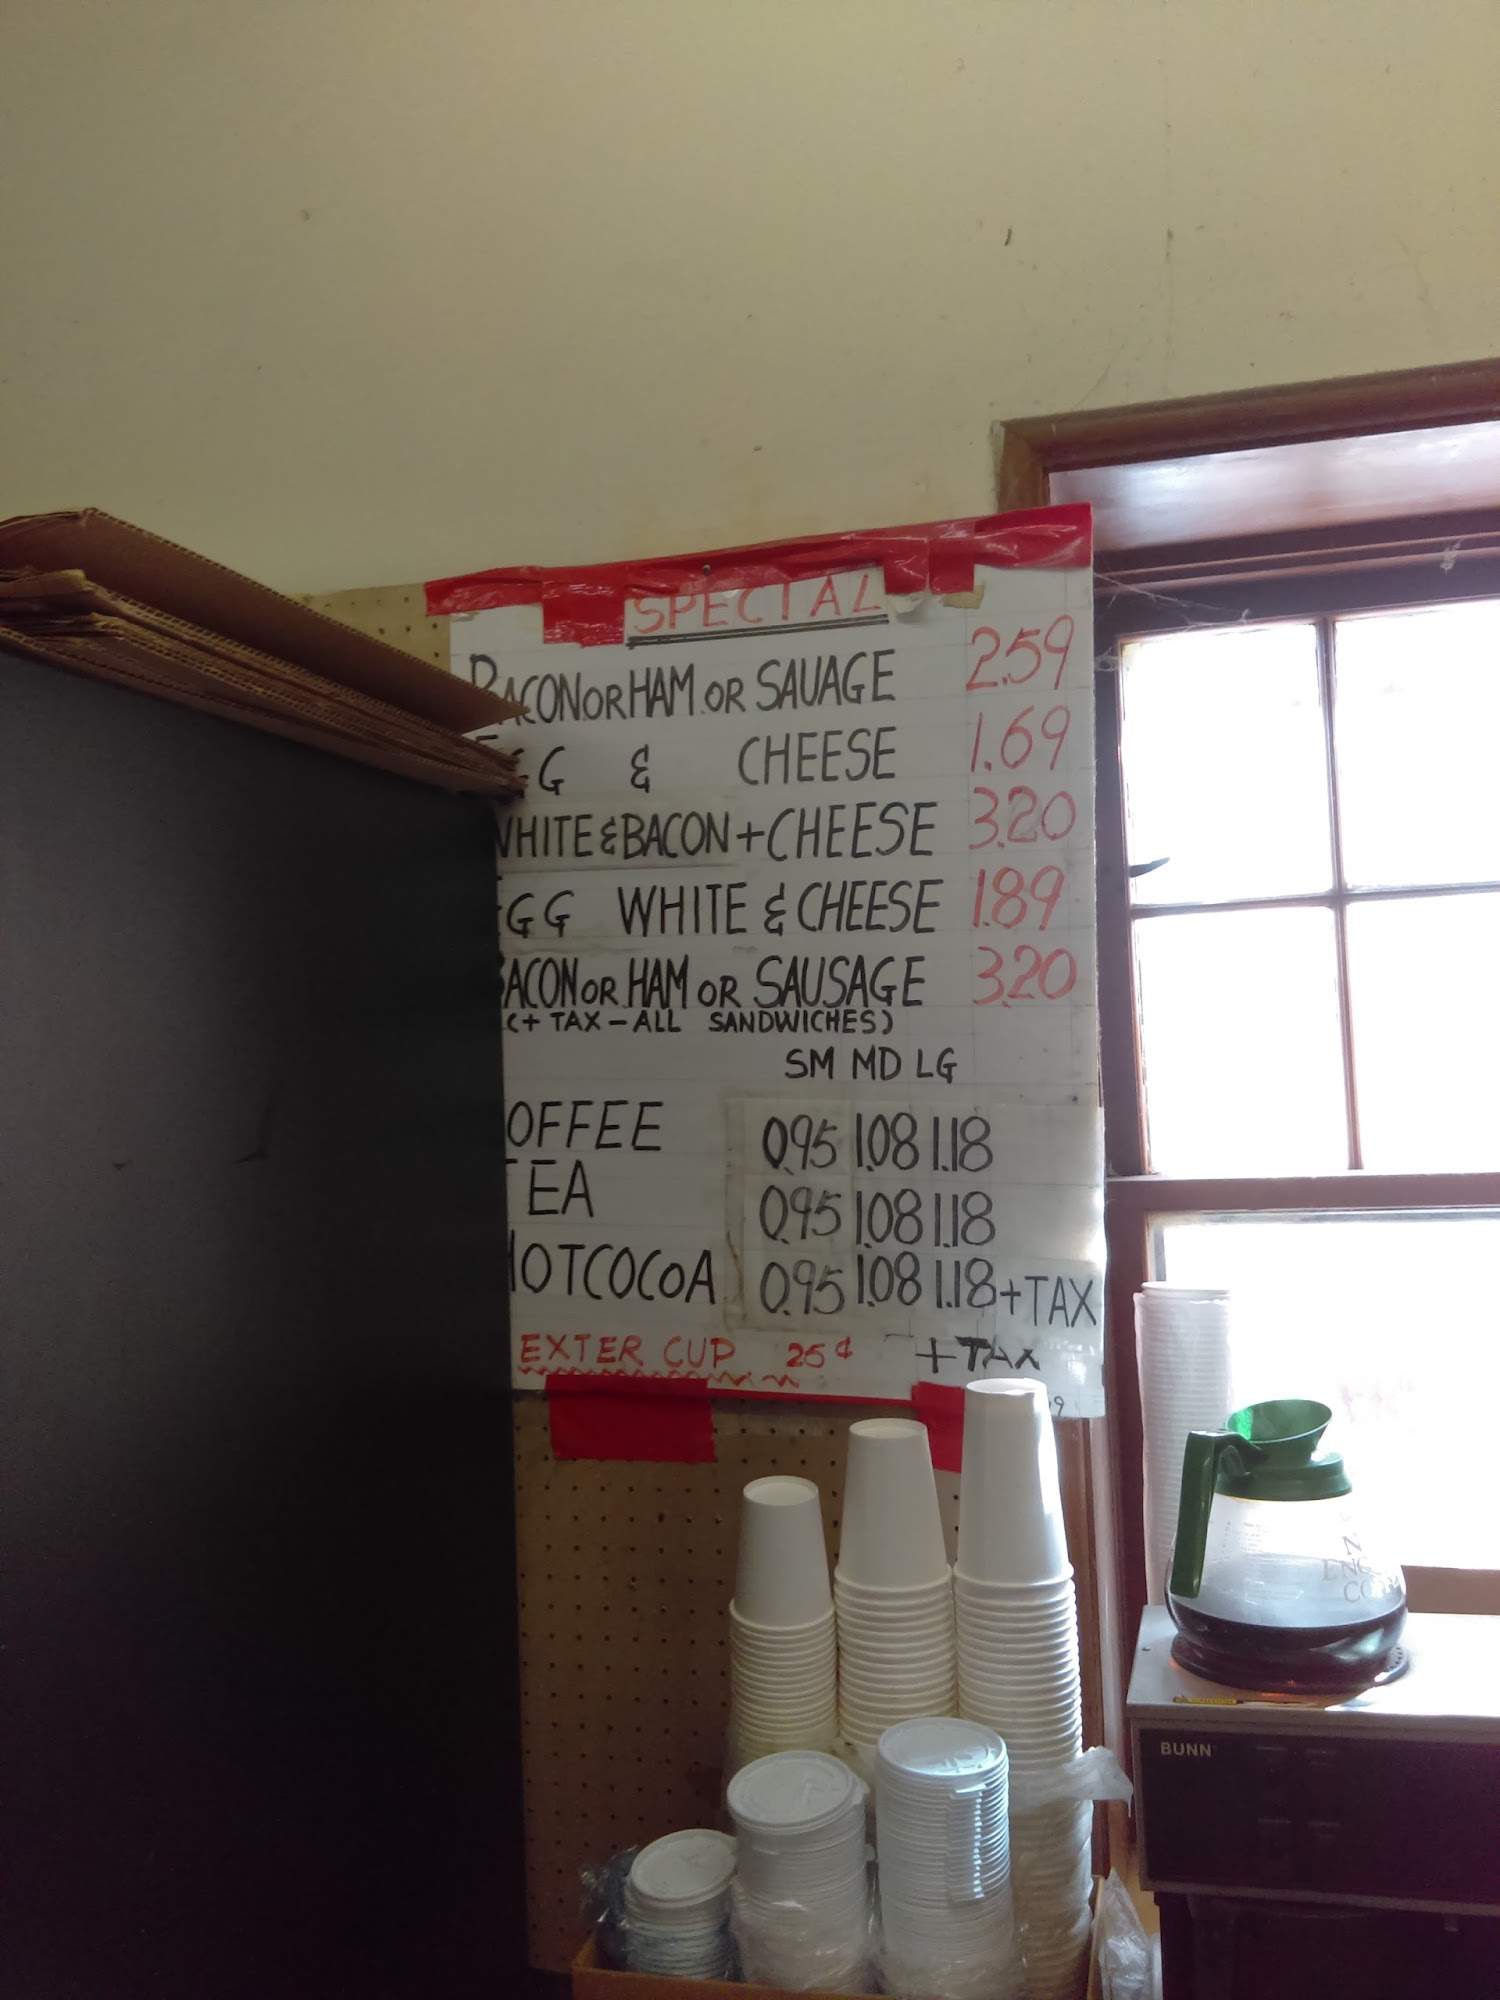 SPECIAL
BACON OR HAM OR SAUAGE 2.59
EGG & CHEESE 1.69
WHITE & BACON + CHEESE 3.20
EGG WHITE & CHEESE 1.89
BACON OR HAM OR SAUSAGE 3.20
(+ TAX - ALL SANDWICHES)
SM MD LG
COFFEE 0.95 1.08 1.18
TEA 0.95 1.08 1.18
HOTCOCOA 0.95 1.08 1.18 + TAX
EXTER CUP 25¢ + TAX
BUNN